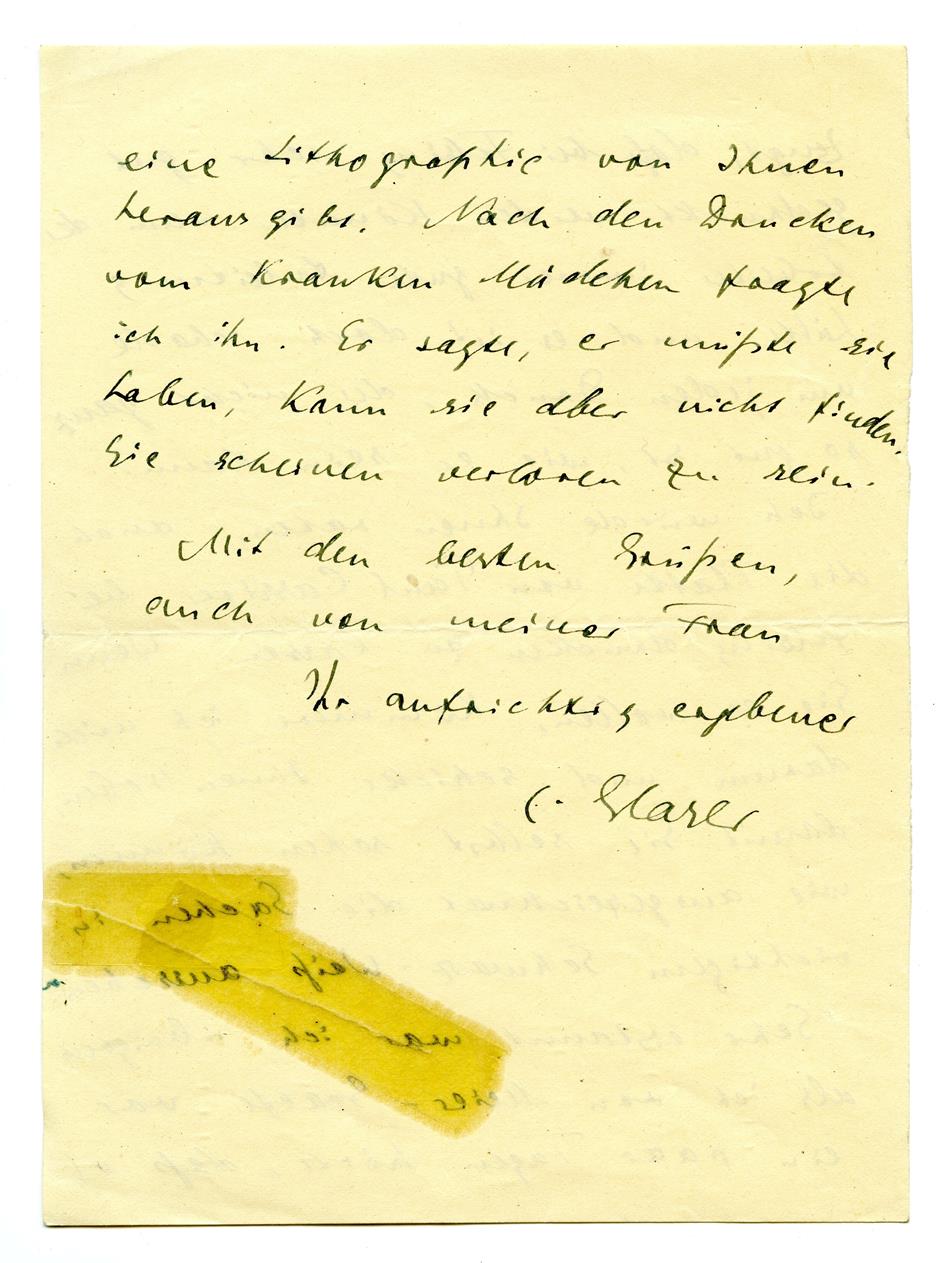 eine Lithographie von Ihnen
herausgibt. Nach den Drucken
vom Kranken Mädchen fragte
ich ihn. Er sagte, er müßte sie
haben, kann sie aber nicht finden.
Sie scheinen verloren zu sein.
Mit den besten Grüßen,
auch von meiner Frau
Ihr aufrichtig ergebener
C. Glaser